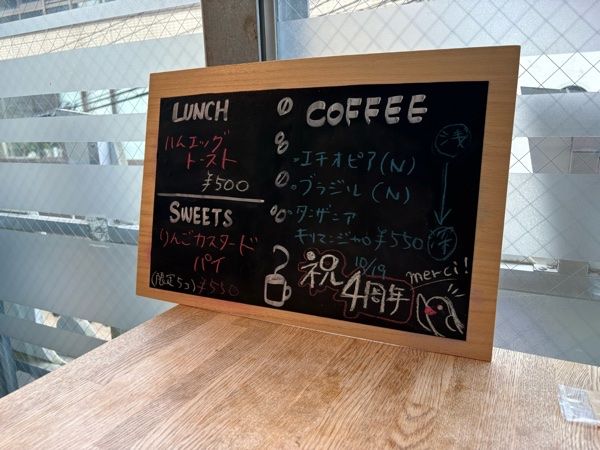 LUNCH
ハムエッグ
トースト
¥500
SWEETS
りんごカスタード
パイ
(限定5コ) ¥550
COFFEE
浅
・エチオピア(N)
・ブラジル(N)
・タンザニア
キリマンジャロ ¥550
深
10/19
祝4周年
merci!